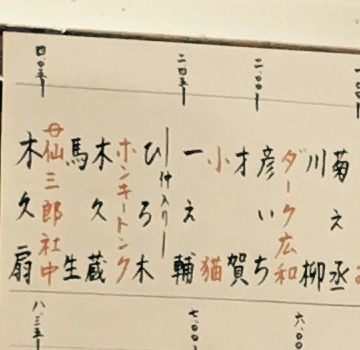 二.〇〇
二.四五
四.〇五
菊之丞
川柳
ダーク広和
彦いち
才賀
小猫
一之輔
仲入り
ひろ木
ホンキートンク
木久蔵
馬生
仙三郎社中
木久扇
八.三五